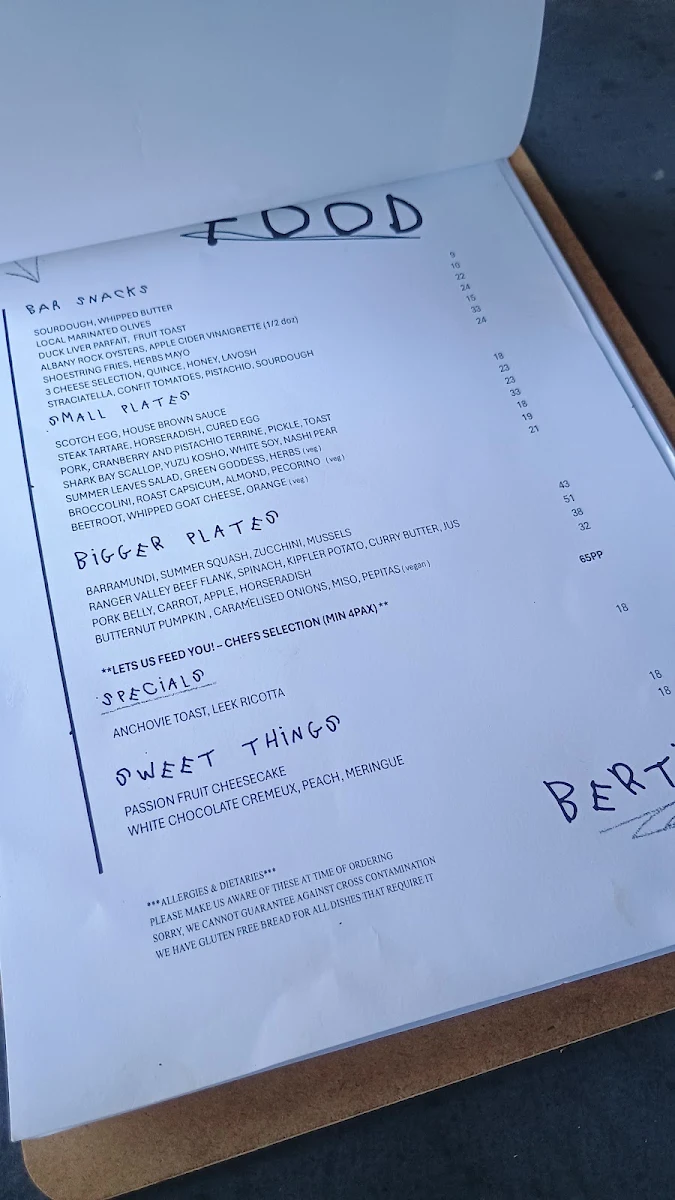 FOOD
BAR SNACKS
SOURDOUGH, WHIPPED BUTTER 9
LOCAL MARINATED OLIVES 10
DUCK LIVER PARFAIT, FRUIT TOAST 22
ALBANY ROCK OYSTERS, APPLE CIDER VINAIGRETTE (1/2 doz) 24
SHOESTRING FRIES, HERBS MAYO 15
3 CHEESE SELECTION, QUINCE, HONEY, LAVOSH 33
STRACIATELLA, CONFIT TOMATOES, PISTACHIO, SOURDOUGH 24
SMALL PLATES
SCOTCH EGG, HOUSE BROWN SAUCE 18
STEAK TARTARE, HORSERADISH, CURED EGG 23
PORK, CRANBERRY AND PISTACHIO TERRINE, PICKLE, TOAST 23
SHARK BAY SCALLOP, YUZU KOSHO, WHITE SOY, NASHI PEAR 33
SUMMER LEAVES SALAD, GREEN GODDESS, HERBS (veg) 18
BROCCOLINI, ROAST CAPSICUM, ALMOND, PECORINO (veg) 19
BEETROOT, WHIPPED GOAT CHEESE, ORANGE (veg) 21
BIGGER PLATES
BARRAMUNDI, SUMMER SQUASH, ZUCCHINI, MUSSELS 43
RANGER VALLEY BEEF FLANK, SPINACH, KIPFLER POTATO, CURRY BUTTER, JUS 51
PORK BELLY, CARROT, APPLE, HORSERADISH 38
BUTTERNUT PUMPKIN , CARAMELISED ONIONS, MISO, PEPITAS (vegan) 32
**LETS US FEED YOU! – CHEFS SELECTION (MIN 4PAX) ** 65PP
SPECIALS
ANCHOVIE TOAST, LEEK RICOTTA 18
SWEET THINGS
PASSION FRUIT CHEESECAKE 18
WHITE CHOCOLATE CREMEUX, PEACH, MERINGUE 18
BERT
***ALLERGIES & DIETARIES***
PLEASE MAKE US AWARE OF THESE AT TIME OF ORDERING
SORRY, WE CANNOT GUARANTEE AGAINST CROSS CONTAMINATION
WE HAVE GLUTEN FREE BREAD FOR ALL DISHES THAT REQUIRE IT